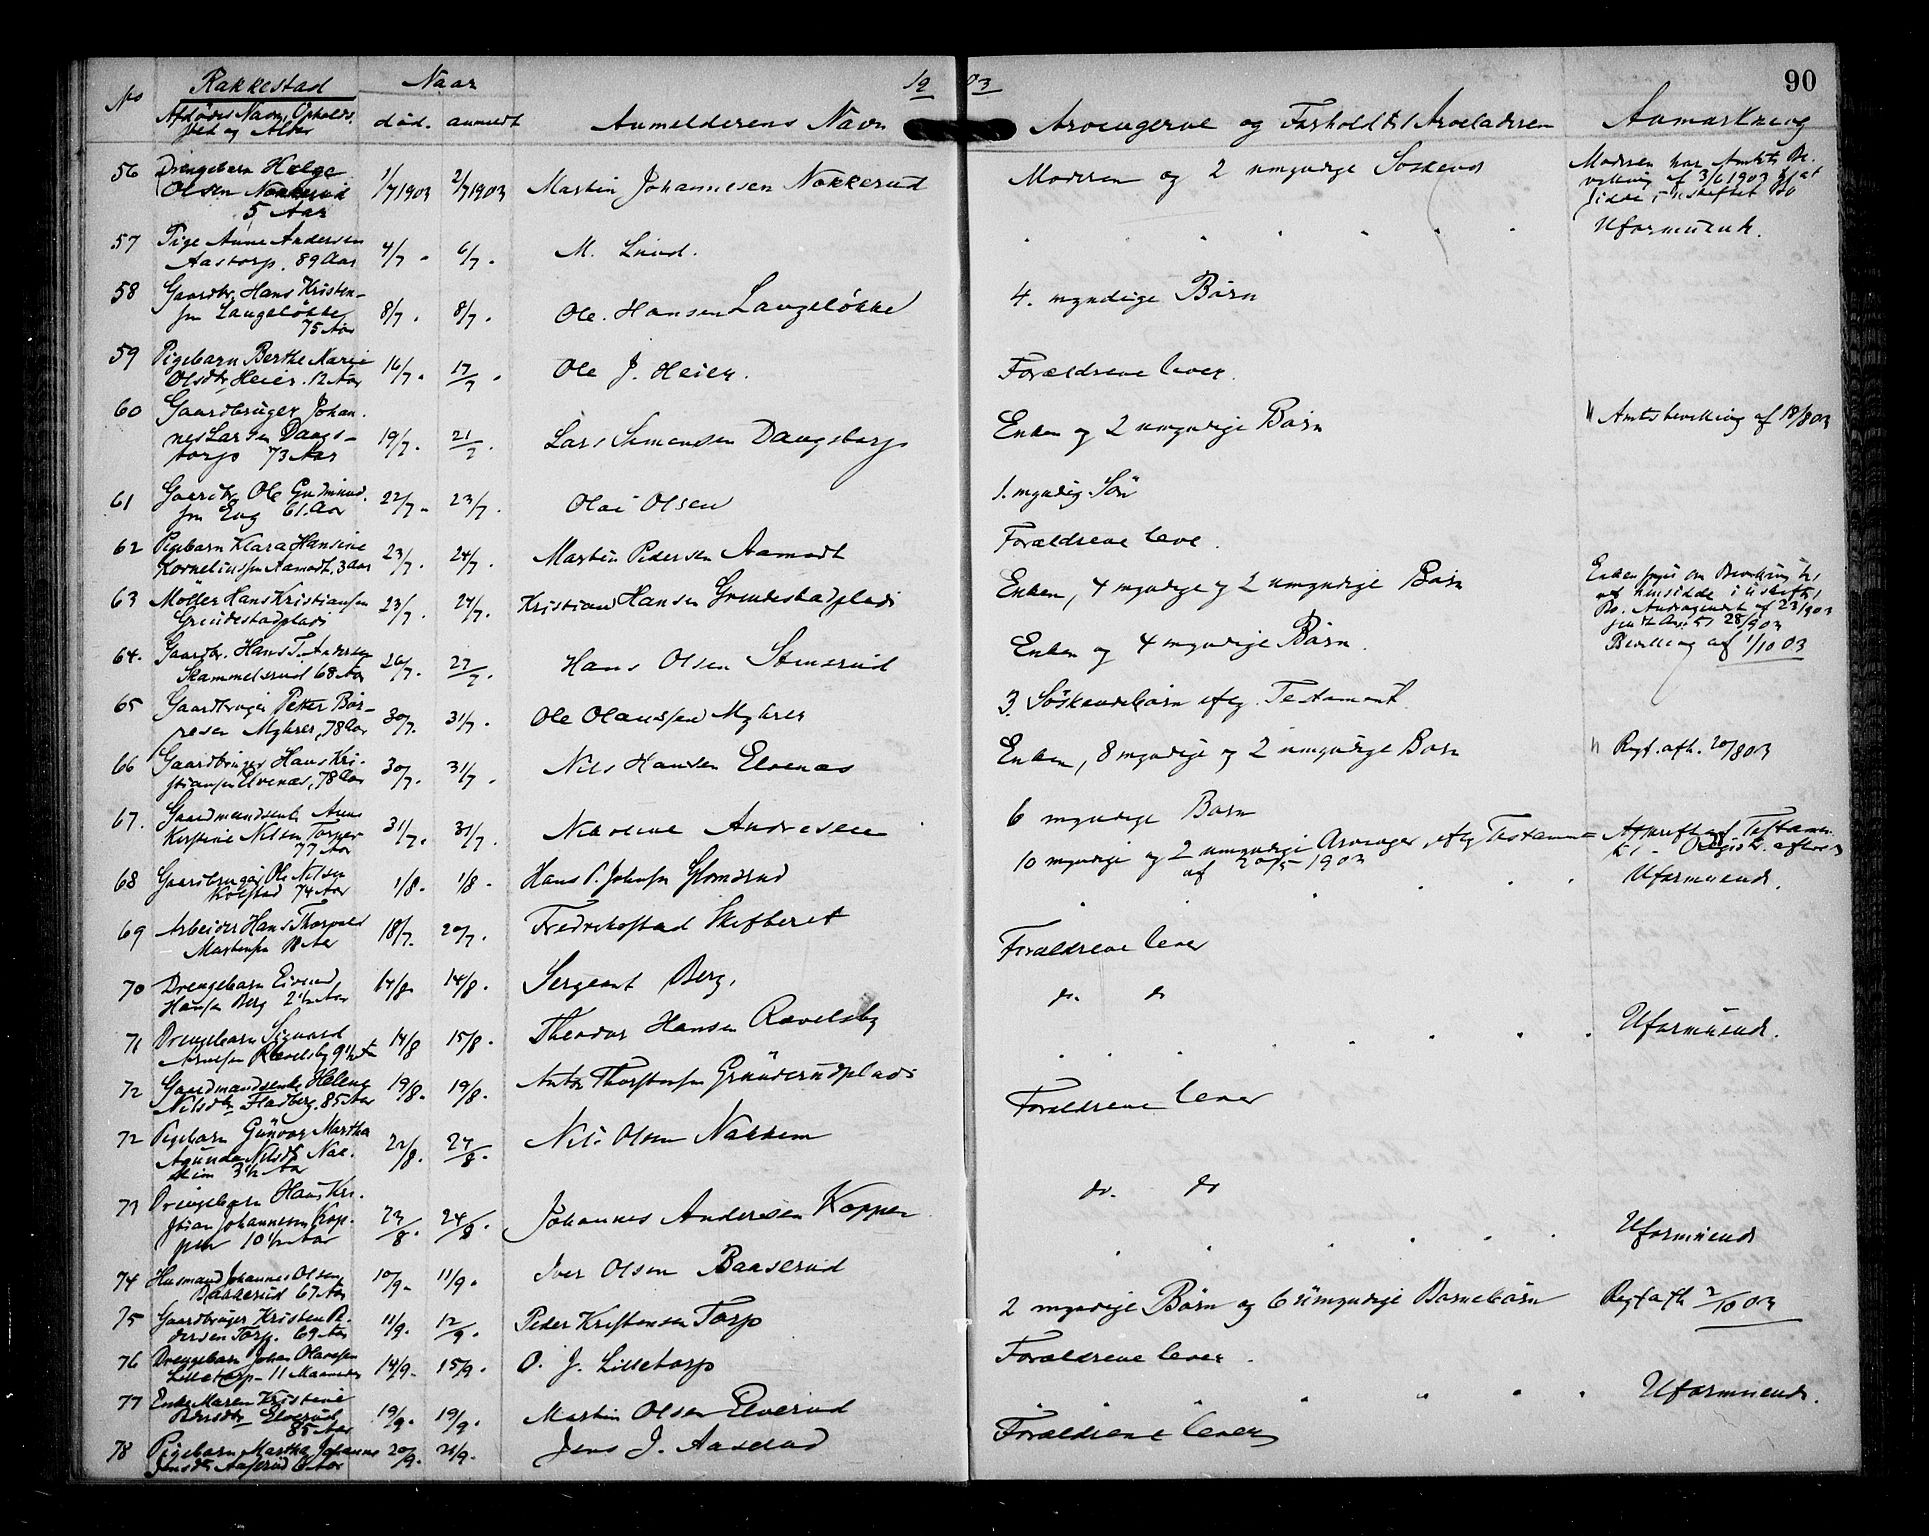 Rakkestad Naar 19 03 90
No Afdødes Navn, Opholds- død. anmeldt Anmelderens Navn Arvingerne og Forholdt til Arveladeren Anmærkning
sted og Alder
56 Drengebarn Helge 1/7 1903 2/7 1903 Martin Johannesen Nokkerud Moderen og 2 umyndige Søskend Moderen har Amtets Be-
Olsen Nokkerud villing af 3/6 1903 til at
5 Aar sidde i uskiftet Bo
57 Pige Anne Andersen 4/7 . 6/7 . M. Lund. Uformuende.
Aastorp. 89 Aar
58 Gaardbr. Hans Kristen- 8/7 . 8/7 . Ole Hansen Langeløkke 4 myndige Børn
sen Langeløkke
75 Aar
59 Pigebarn Berthe Marie 16/7 . 17/7 . Ole J. Heier. Forældrene lever.
Olsdtr Heier. 12 Aar
60 Gaardbruger Johan- 19/7 . 21/7 . Lars Simensen Daugstorp Enken og 2 umyndige Børn " Amtsbevilling af 18/8 03
nes Larsen Daugs-
torp 73 Aar
61 Gaardbr. Ole Gudmund- 22/7 . 23/7 . Olai Olsen 1 myndig Søn
sen Eng 61 Aar
62 Pigebarn Klara Hansine 23/7 . 24/7 . Martin Pedersen Aamodt Forældrene leve.
Korneliussen Aamodt, 3 Aar
63 Møller Hans Kristiansen 23/7 . 24/7 . Kristian Hansen Grindestadplads Enken, 4 myndige og 2 umyndige Børn Enken søger om Bevilling til
Grindestadplads at hensidde i uskiftet
Bo. Andragendet af 23/9 03
28/9 03
64. Gaardbr. Hans T. Andersen 26/7 . 27/7 . Hans Olsen Stenerud Enken og 4 myndige Børn. Bevilling af 1/10 03
Skammelsrud 68 Aar
65 Gaardbruger Petter Bør- 30/7 . 31/7 . Ole Olaussen Myhrer 3 Søskendebørn iflg. Testament.
resen Myhrer, 78 Aar
66 Gaardbruger Hans Kri- 30/7 . 31/7 . Nils Hansen Elvenæs Enken, 8 myndige og 2 umyndige Børn " Regf. afh. 20/8 03
stiansen Elvenæs, 78 Aar
67. Gaardmandsenke Anne 31/7 . 31/7 . Nikoline Andresen 6 myndige Børn
Kirstine Nilsen Torper
77 Aar
68 Gaardbruger Ole Nilsen 1/8 . 1/8 . Hans P. Johnsen Glomsrud 10 myndige og 2 umyndige Arvinger iflg Testamente Afskrift af Testamen-
Kolstad 74 Aar af 20/5 1903
69 Arbeider Hans Thorvald 18/7 . 20/7 . Fredrikstad Skifteret Uformuende.
Martinsen 18 Aar
70 Drengebarn Eivind 14/8 . 14/8 . Sergeant Berg. Forældrene lever
Hansen Berg 2½ Aar
71 Drengebarn Sigvard 14/8 15/8 . Theodor Hansen Rævelsby do. do
Arnesen Rævelsby 9½
72 Gaardmandsenke Helene 19/8 . 19/8 . Anton Thorstensen Grønderudplads Uformuende.
Nilsdtr Fladberg. 85 Aar
72 Pigebarn Gunvor Martha 22/8 . 24/8 . Nils Olsen Nakkem Forældrene lever
Agunda Nilsdtr Nak-
kim 3½ Aar
73 Drengebarn Hans Kri- 23/8 . 24/8 . Johannes Andersen Kopper do. do
stian Johannesen Kop-
per 10½ Aar
74 Husmand Johannes Olsen 10/9 . 11/9 . Iver Olsen Baaserud Uformuende
67 Aar
75 Gaardbruger Kristen Pe- 11/9 . 12/9 . Peder Kristensen Torp 2 myndige Børn og 6 umyndige Børnebørn Regf afh 2/10 03
dersen Torp. 69 Aar
76 Drengebarn Johan Olavesen 14/9 . 15/9 . O. J. Lilletorp Forældrene lever.
Lilletorp - 11 Maaneder
77 Enke Maren Kristine 19/9 . 19/9 . Martin Olsen Elverud Uformuende.
Pedersdtr Elverud
85 Aar
78 Pigebarn Martha Johanne 20/9 . 21/9 . Jens J. Aaserud Forældrene lever
Jensdtr Aaserud 6 Aar